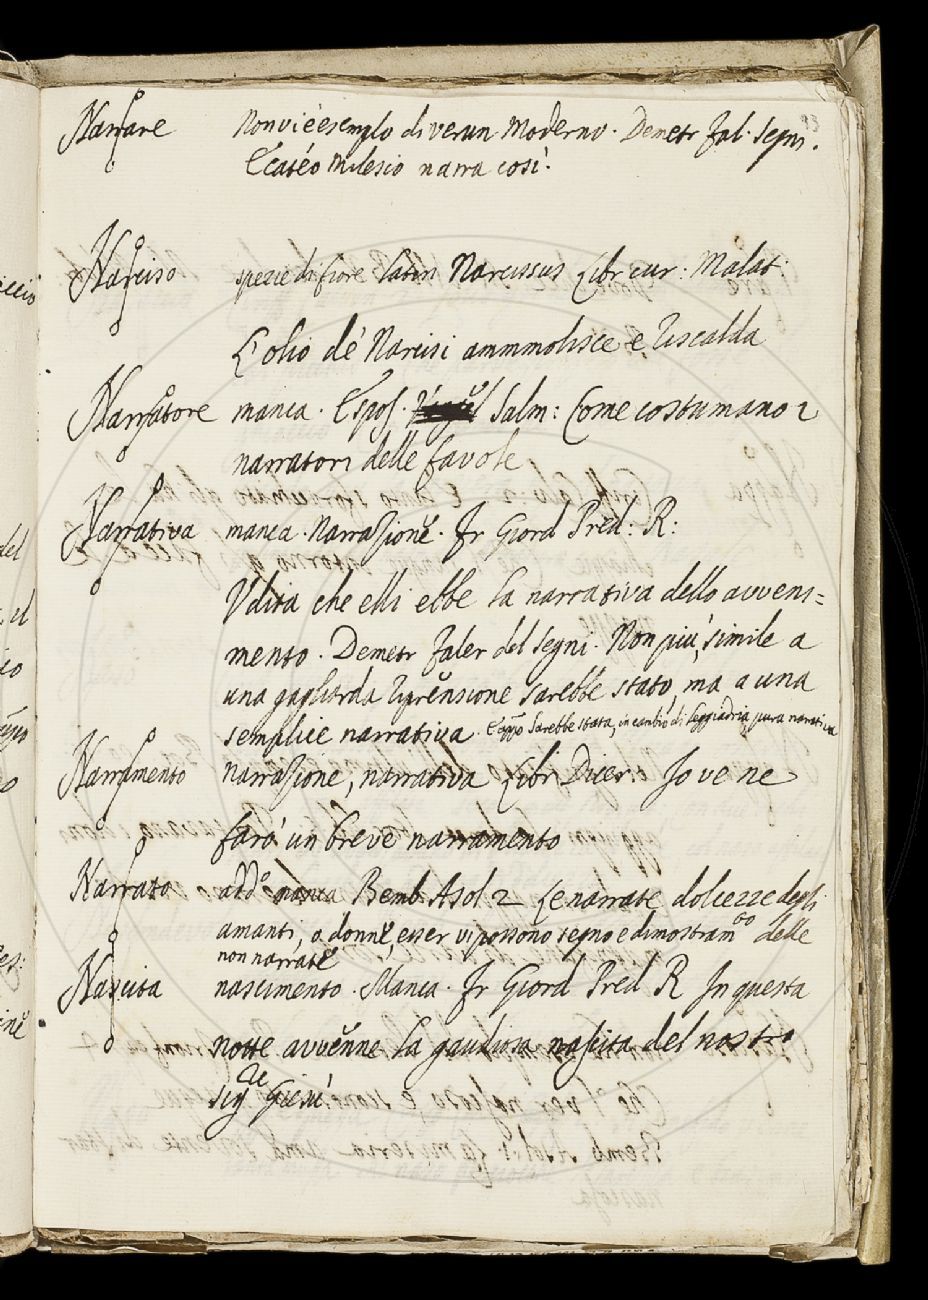 93
Narrare Non vi è esemplo di verun Moderno. Demetr Fal. Segni.
Ecatéo Milesio narra così.
Narciso spezie di fiore latin Narcissus Libr cur: Malat.
L'olio de' Narcisi ammmolisce e riscalda
Narratore manca. Espos. Salm: Come costumano i
narratori delle favole
Narrativa manca. Narrazione. Fr Giord Pred: R:
Udita che elli ebbe la narrativa dello avveni=
mento. Demetr Faler del Segni. Non più simile a
una gagliarda riprensione sarebbe stato, ma a una
semplice narrativa. E app̃o sarebbe stata, in cambio di leggiadria, pura narrativa
Narramento narrazione, narrativa Libr Dicer: Io ve ne
farò un breve narramento
Narrato add.º manca Bemb Asol 2 Le narrate dolcezze degli
amanti, o donne, esser vi possono segno e dimostram.to delle
non narrate
Nascita nascimento. Manca. Fr Giord Pred R In questa
notte avvenne la gaudiosa nascita del nostro
Sig.re Giesù